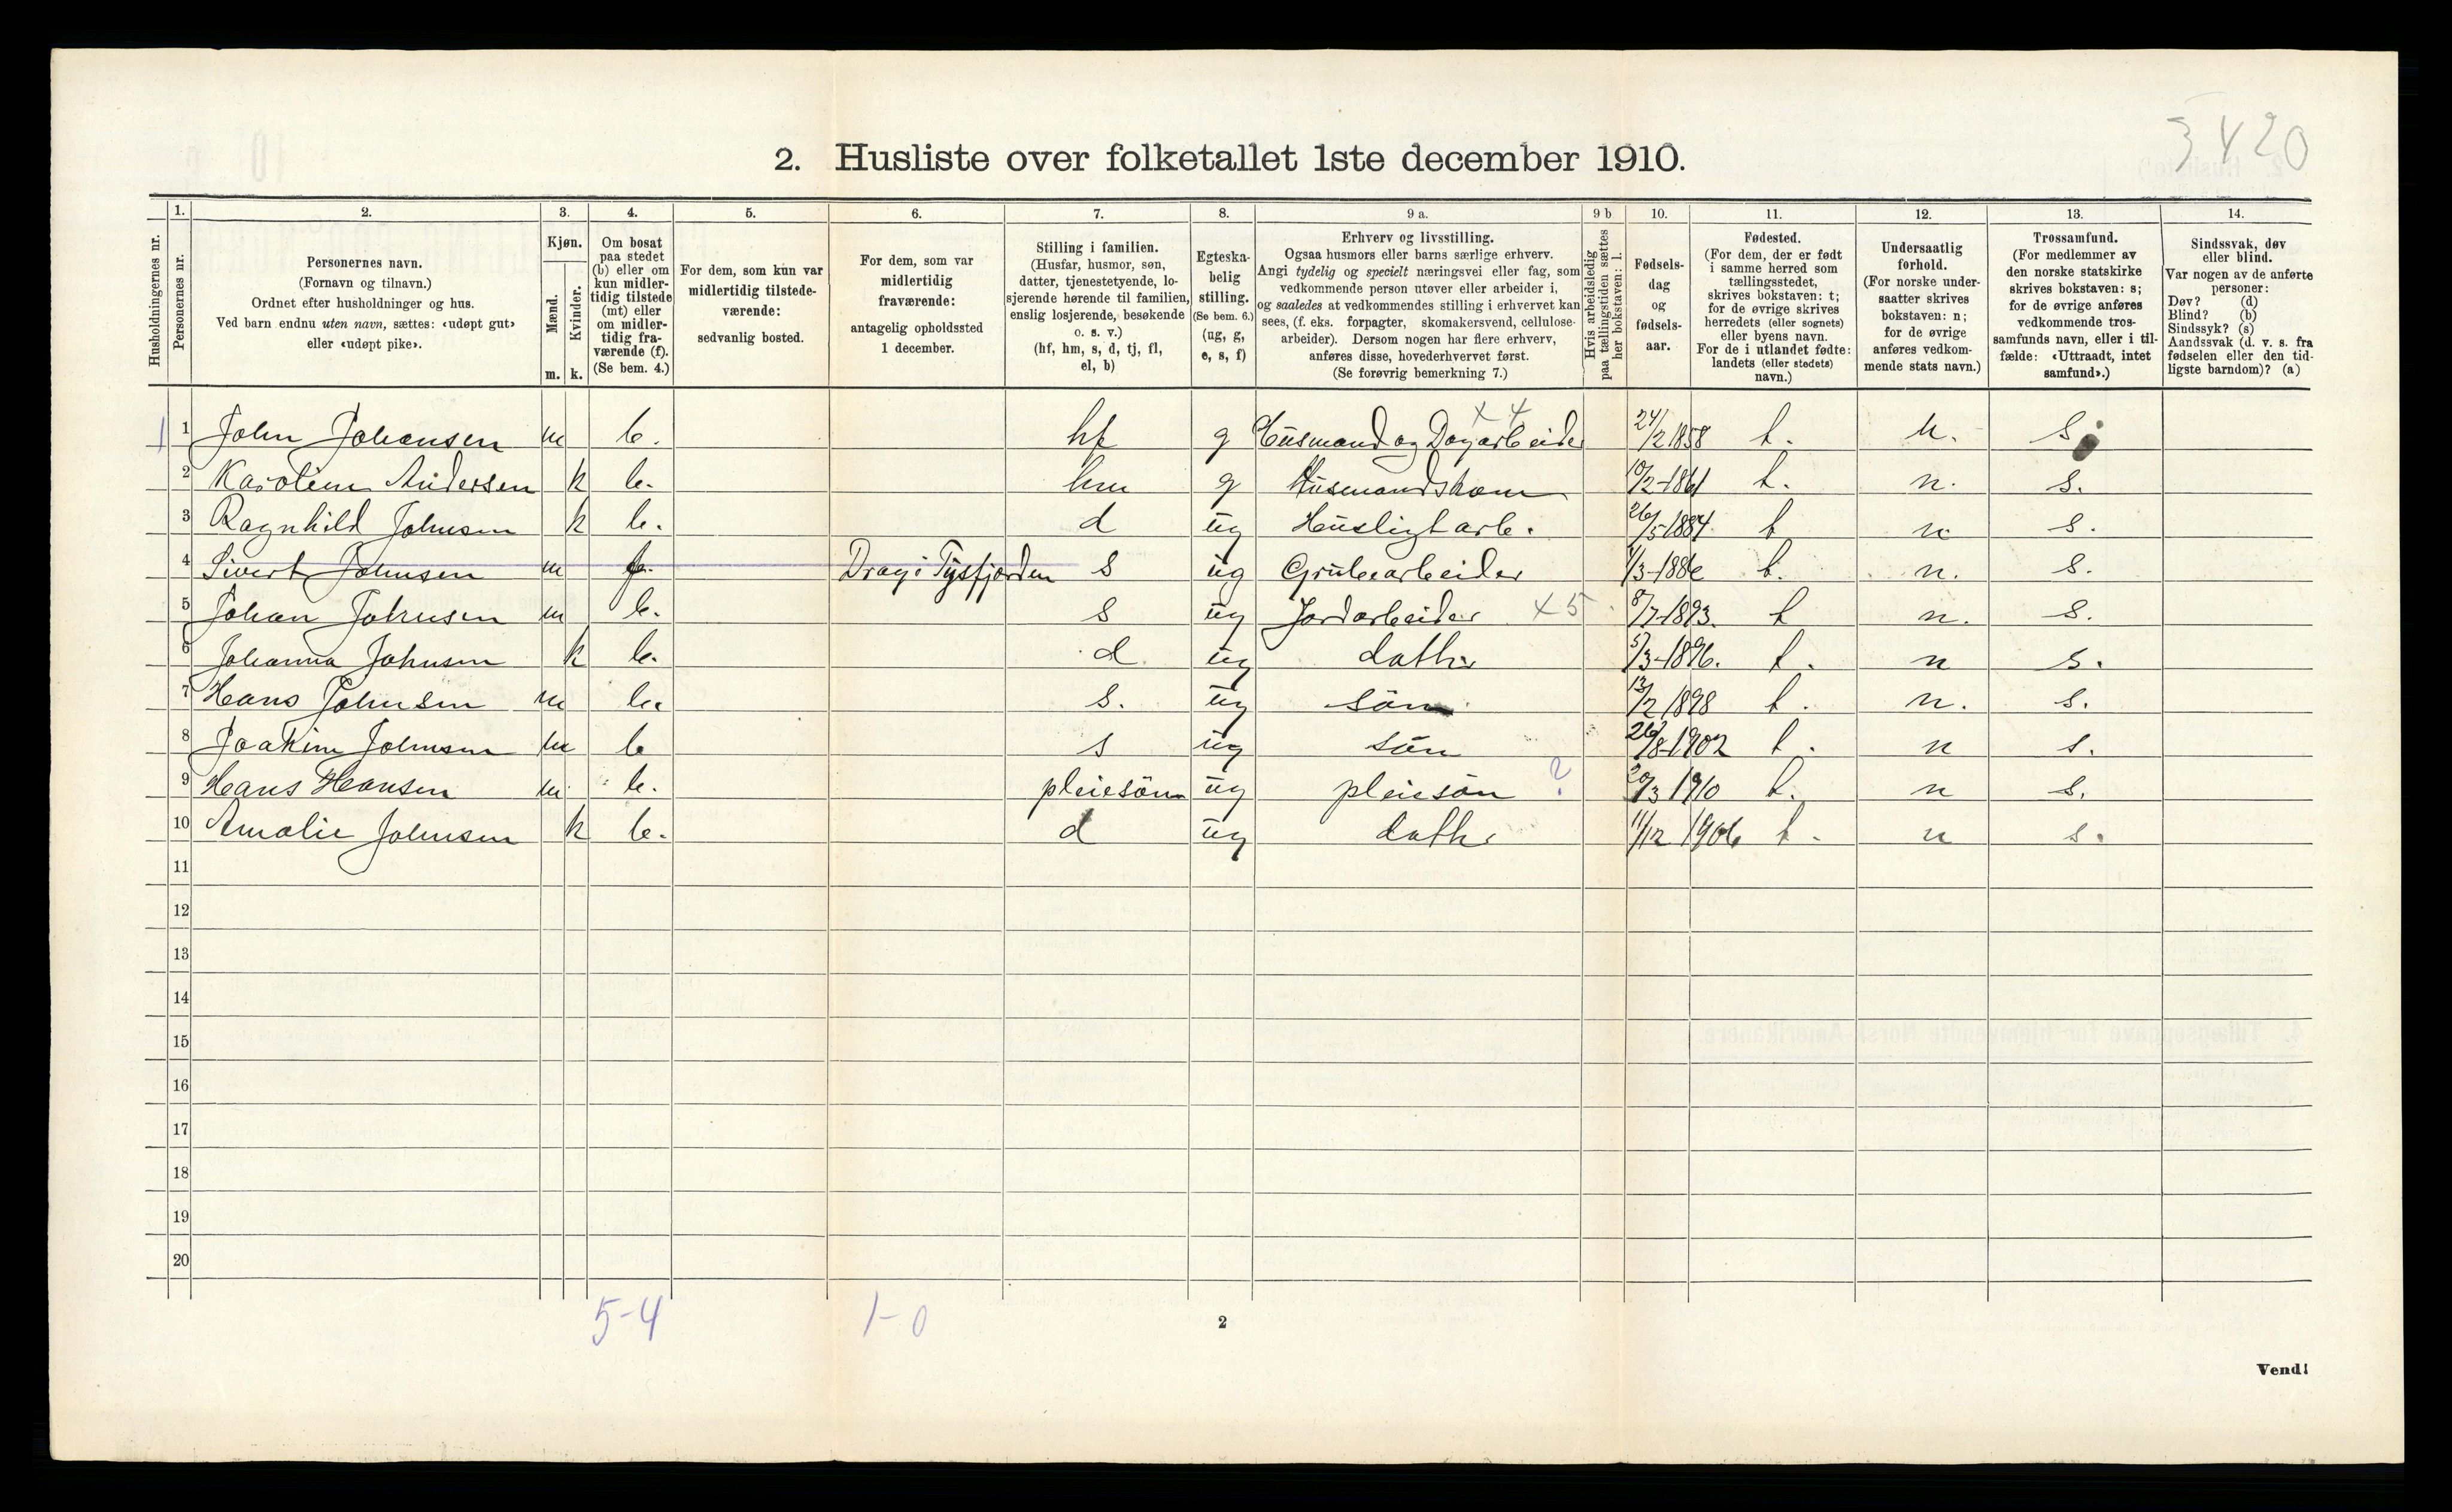 3420
2. Husliste over folketallet 1ste december 1910.
1. 2. 3. 4. 5. 6. 7. 8. 9 a. 9 b 10. 11. 12. 13. 14.
Husholdningernes nr.
Personernes nr.
Personernes navn.
(Fornavn og tilnavn.)
Ordnet efter husholdninger og hus.
Ved barn endnu uten navn, sættes: «udøpt gut»
eller «udøpt pike».
Kjøn.
Mænd.
Kvinder.
m. k.
Om bosat
paa stedet
(b) eller om
kun midler-
tidig tilstede
(mt) eller
om midler-
tidig fra-
værende (f).
(Se bem. 4.)
For dem, som kun var
midlertidig tilstede-
værende:
sedvanlig bosted.
For dem, som var
midlertidig
fraværende:
antagelig opholdssted
1 december.
Stilling i familien.
(Husfar, husmor, søn,
datter, tjenestetyende, lo-
sjerende hørende til familien,
enslig losjerende, besøkende
o. s. v.)
(hf, hm, s, d, tj, fl,
el, b)
Egteska-
belig
stilling.
(Se bem. 6.)
(ug, g,
e, s, f)
Erhverv og livsstilling.
Ogsaa husmors eller barns særlige erhverv.
Angi tydelig og specielt næringsvei eller fag, som
vedkommende person utøver eller arbeider i,
og saaledes at vedkommendes stilling i erhvervet kan
sees, (f. eks. forpagter, skomakersvend, cellulose-
arbeider). Dersom nogen har flere erhverv,
anføres disse, hovederhvervet først.
(Se forøvrig bemerkning 7.)
Hvis arbeidsledig
paa tællingstiden sættes
her bokstaven: l.
Fødsels-
dag
og
fødsels-
aar.
Fødested.
(For dem, der er født
i samme herred som
tællingsstedet,
skrives bokstaven: t;
for de øvrige skrives
herredets (eller sognets)
eller byens navn.
For de i utlandet fødte:
landets (eller stedets)
navn.)
Undersaatlig
forhold.
(For norske under-
saatter skrives
bokstaven: n;
for de øvrige
anføres vedkom-
mende stats navn.)
Trossamfund.
(For medlemmer av
den norske statskirke
skrives bokstaven: s;
for de øvrige anføres
vedkommende tros-
samfunds navn, eller i til-
fælde: «Uttraadt, intet
samfund».)
Sindssvak, døv
eller blind.
Var nogen av de anførte
personer:
Døv? (d)
Blind? (b)
Sindssyk? (s)
Aandssvak (d. v. s. fra
fødselen eller den tid-
ligste barndom)? (a)
x 4
1 1 John Johansen m b. hf g Husmand og Dagarbeider 24/2 1858 t. n. s.
2 Karoline Andersen k b. hm g Husmandskone 10/2-1861 t. n. s.
3 Ragnhild Johnsen k b. d ug Husligt arb. 26/5-1884 t n s.
4 Sivert Johnsen m f. Drag i Tysfjorden s ug Grubearbeider 1/3-1886 t. n. s.
5 Johan Johnsen m b. s ug Jordarbeider x 5 8/7-1893. t n. s.
6 Johanna Johnsen k b. d ug datter 5/3-1896. t. n s.
7 Hans Johnsen m b. s. ug søn 13/2 1898 t. n. s.
8 Joakim Johnsen m b s ug søn 26/8-1902 t. n s.
9 Hans Hansen m b. pleiesøn ug pleiesøn ? 20/3 1910 t. n s.
10 Amalie Johnsen k b. d ug datter 11/12 1906 t. n s.
11
12
13
14
15
16
17
18
19
20
5-4 1-0
2
Vend!